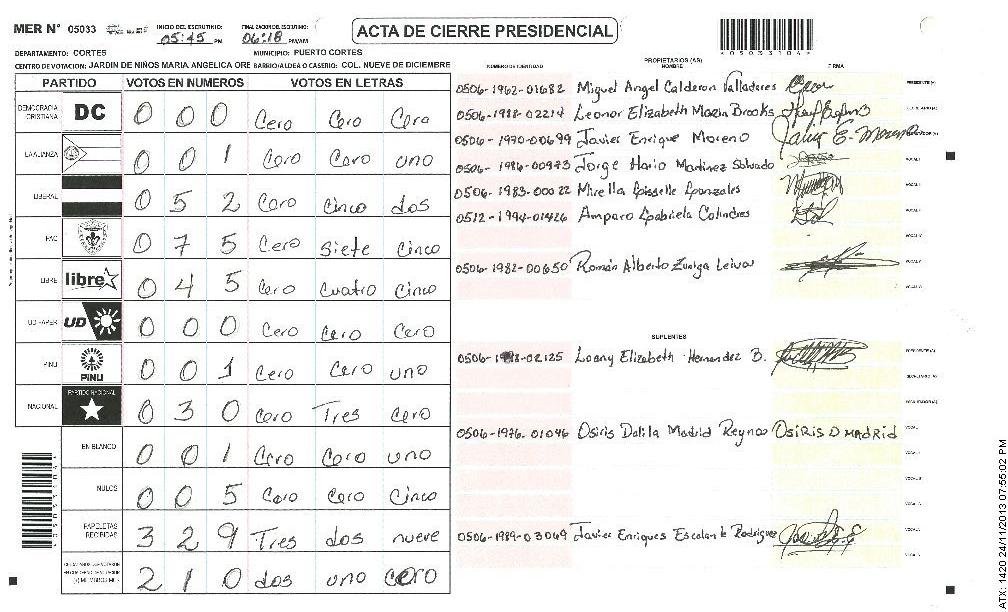 MER N° 05033
INICIO DEL ESCRUTINIO: 05:45 PM
FINALIZACION DEL ESCRUTINIO: 06:18 PM/AM
ACTA DE CIERRE PRESIDENCIAL
*05033104*
DEPARTAMENTO: CORTES MUNICIPIO: PUERTO CORTES
CENTRO DE VOTACION: JARDIN DE NIÑOS MARIA ANGELICA ORE BARRIO/ALDEA O CASERIO: COL. NUEVE DE DICIEMBRE
PARTIDO VOTOS EN NUMEROS VOTOS EN LETRAS
DEMOCRACIA CRISTIANA DC 0 0 0 Cero Cero Cero
LA ALIANZA 0 0 1 Cero Cero uno
LIBERAL 0 5 2 Cero Cinco dos
PAC 0 7 5 Cero Siete Cinco
LIBRE libre 0 4 5 Cero Cuatro Cinco
UD FAPER UD 0 0 0 Cero Cero Cero
PINU PINU 0 0 1 Cero Cero uno
NACIONAL PARTIDO NACIONAL 0 3 0 Cero Tres Cero
EN BLANCO 0 0 1 Cero Cero uno
NULOS 0 0 5 Cero Cero Cinco
PAPELETAS RECIBIDAS 3 2 9 Tres dos nueve
2 1 0 dos uno cero
NUMERO DE IDENTIDAD PROPIETARIOS (AS) NOMBRE FIRMA
0506-1962-01682 Miguel Angel Calderon Valladares PRESIDENTE (A)
0506-1988-02214 Leonor Elizabeth Marin Brooks SECRETARIO (A)
0506-1970-00699 Javier Enrique Moreno Javier E. Moreno
0506-1986-00973 Jorge Mario Martinez Salvado VOCAL I
0506-1983-00022 Mirella Gisselle Gonzales VOCAL II
0512-1994-01426 Amparo Gabriela Colindres
0506-1982-00650 Román Alberto Zuniga Leiva
SUPLENTES
Loany Elizabeth Hernandez B. PRESIDENTE (A)
SECRETARIO (A)
ESCRUTADOR (A)
0506-1976-01046 Osiris Dalila Madrid Reynos OSIRIS D MADRID
0506-1989-03069 Javier Enriques Escalante Rodriguez
ATX: 1420 24/11/2013 07:55:02 PM